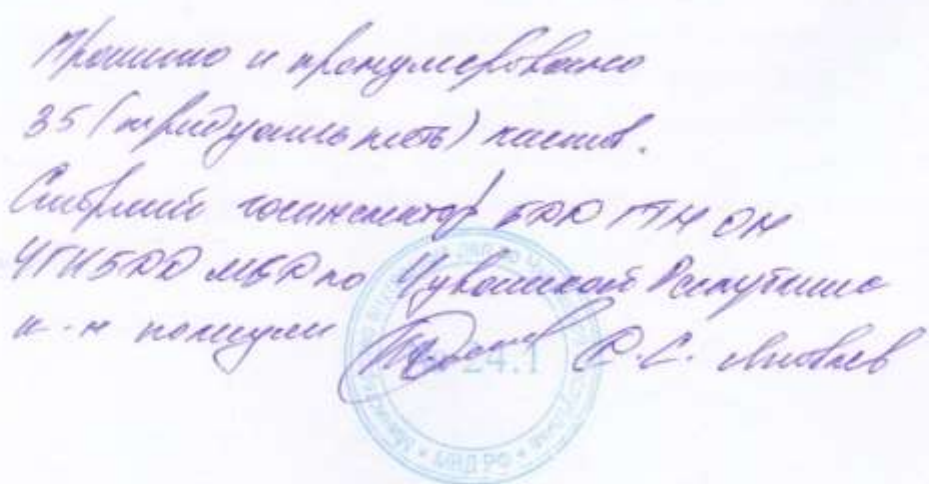 Прошито и пронумеровано
35 (тридцать пять) листов.
Старший госинспектор БДД ГТН ОН
УГИБДД МВД по Чувашской Республике
к-н полиции
24.1
МВД РФ